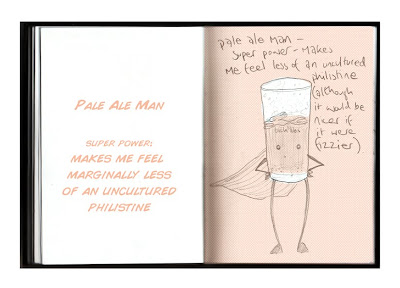 PALE ALE MAN
SUPER POWER:
MAKES ME FEEL
MARGINALLY LESS
OF AN UNCULTURED
PHILISTINE
pale ale man –
super power – makes
me feel less of an uncultured
philistine
(although
it would be
nicer if
it were
fizzier)